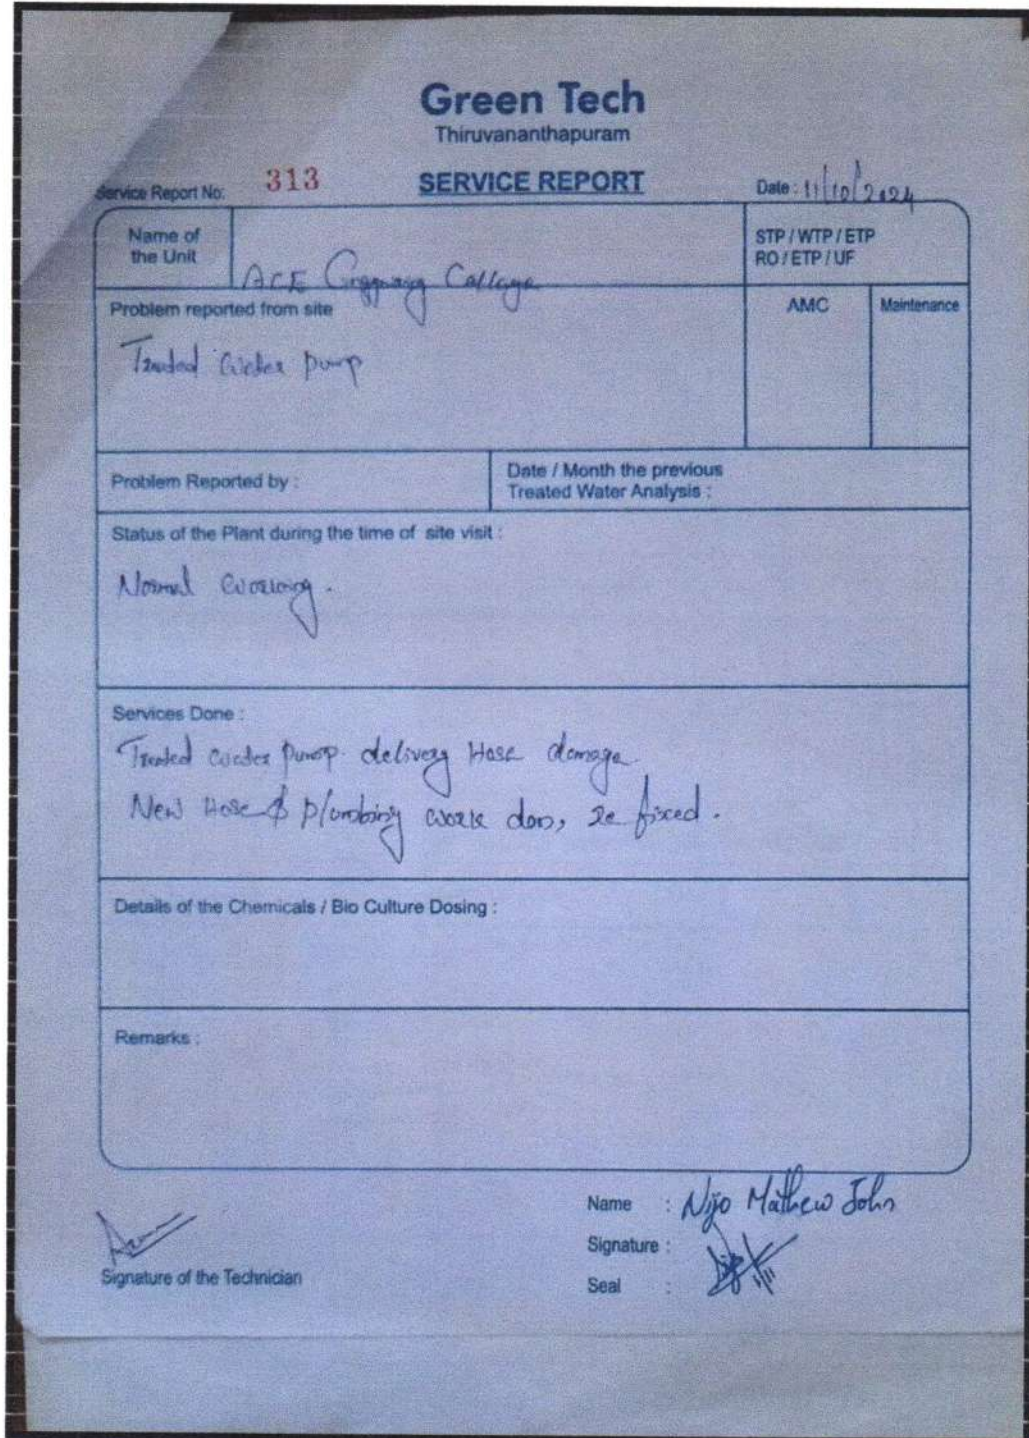 Green Tech
Thiruvananthapuram
Service Report No: 313 SERVICE REPORT Date : 11/10/2024
Name of the Unit
ACE College
STP / WTP / ETP
RO / ETP / UF
Problem reported from site
Treated water pump
AMC
Maintenance
Problem Reported by :
Date / Month the previous
Treated Water Analysis :
Status of the Plant during the time of site visit :
Normal working.
Services Done :
Treated water pump delivery Hose damage
New Hose & plumbing work don, re fixed.
Details of the Chemicals / Bio Culture Dosing :
Remarks :
Name : Nijo Mathew John
Signature :
Signature of the Technician
Seal :